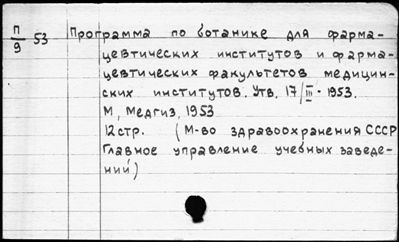 П/9 53 Программа по ботанике для фарма-
цевтических институтов и фарма-
цевтических факультетов медицин-
ских институтов. Утв. 17/III - 1953.
М, Медгиз, 1953
12 стр. (М-во здравоохранения СССР
Главное управление учебных заведе-
ний)